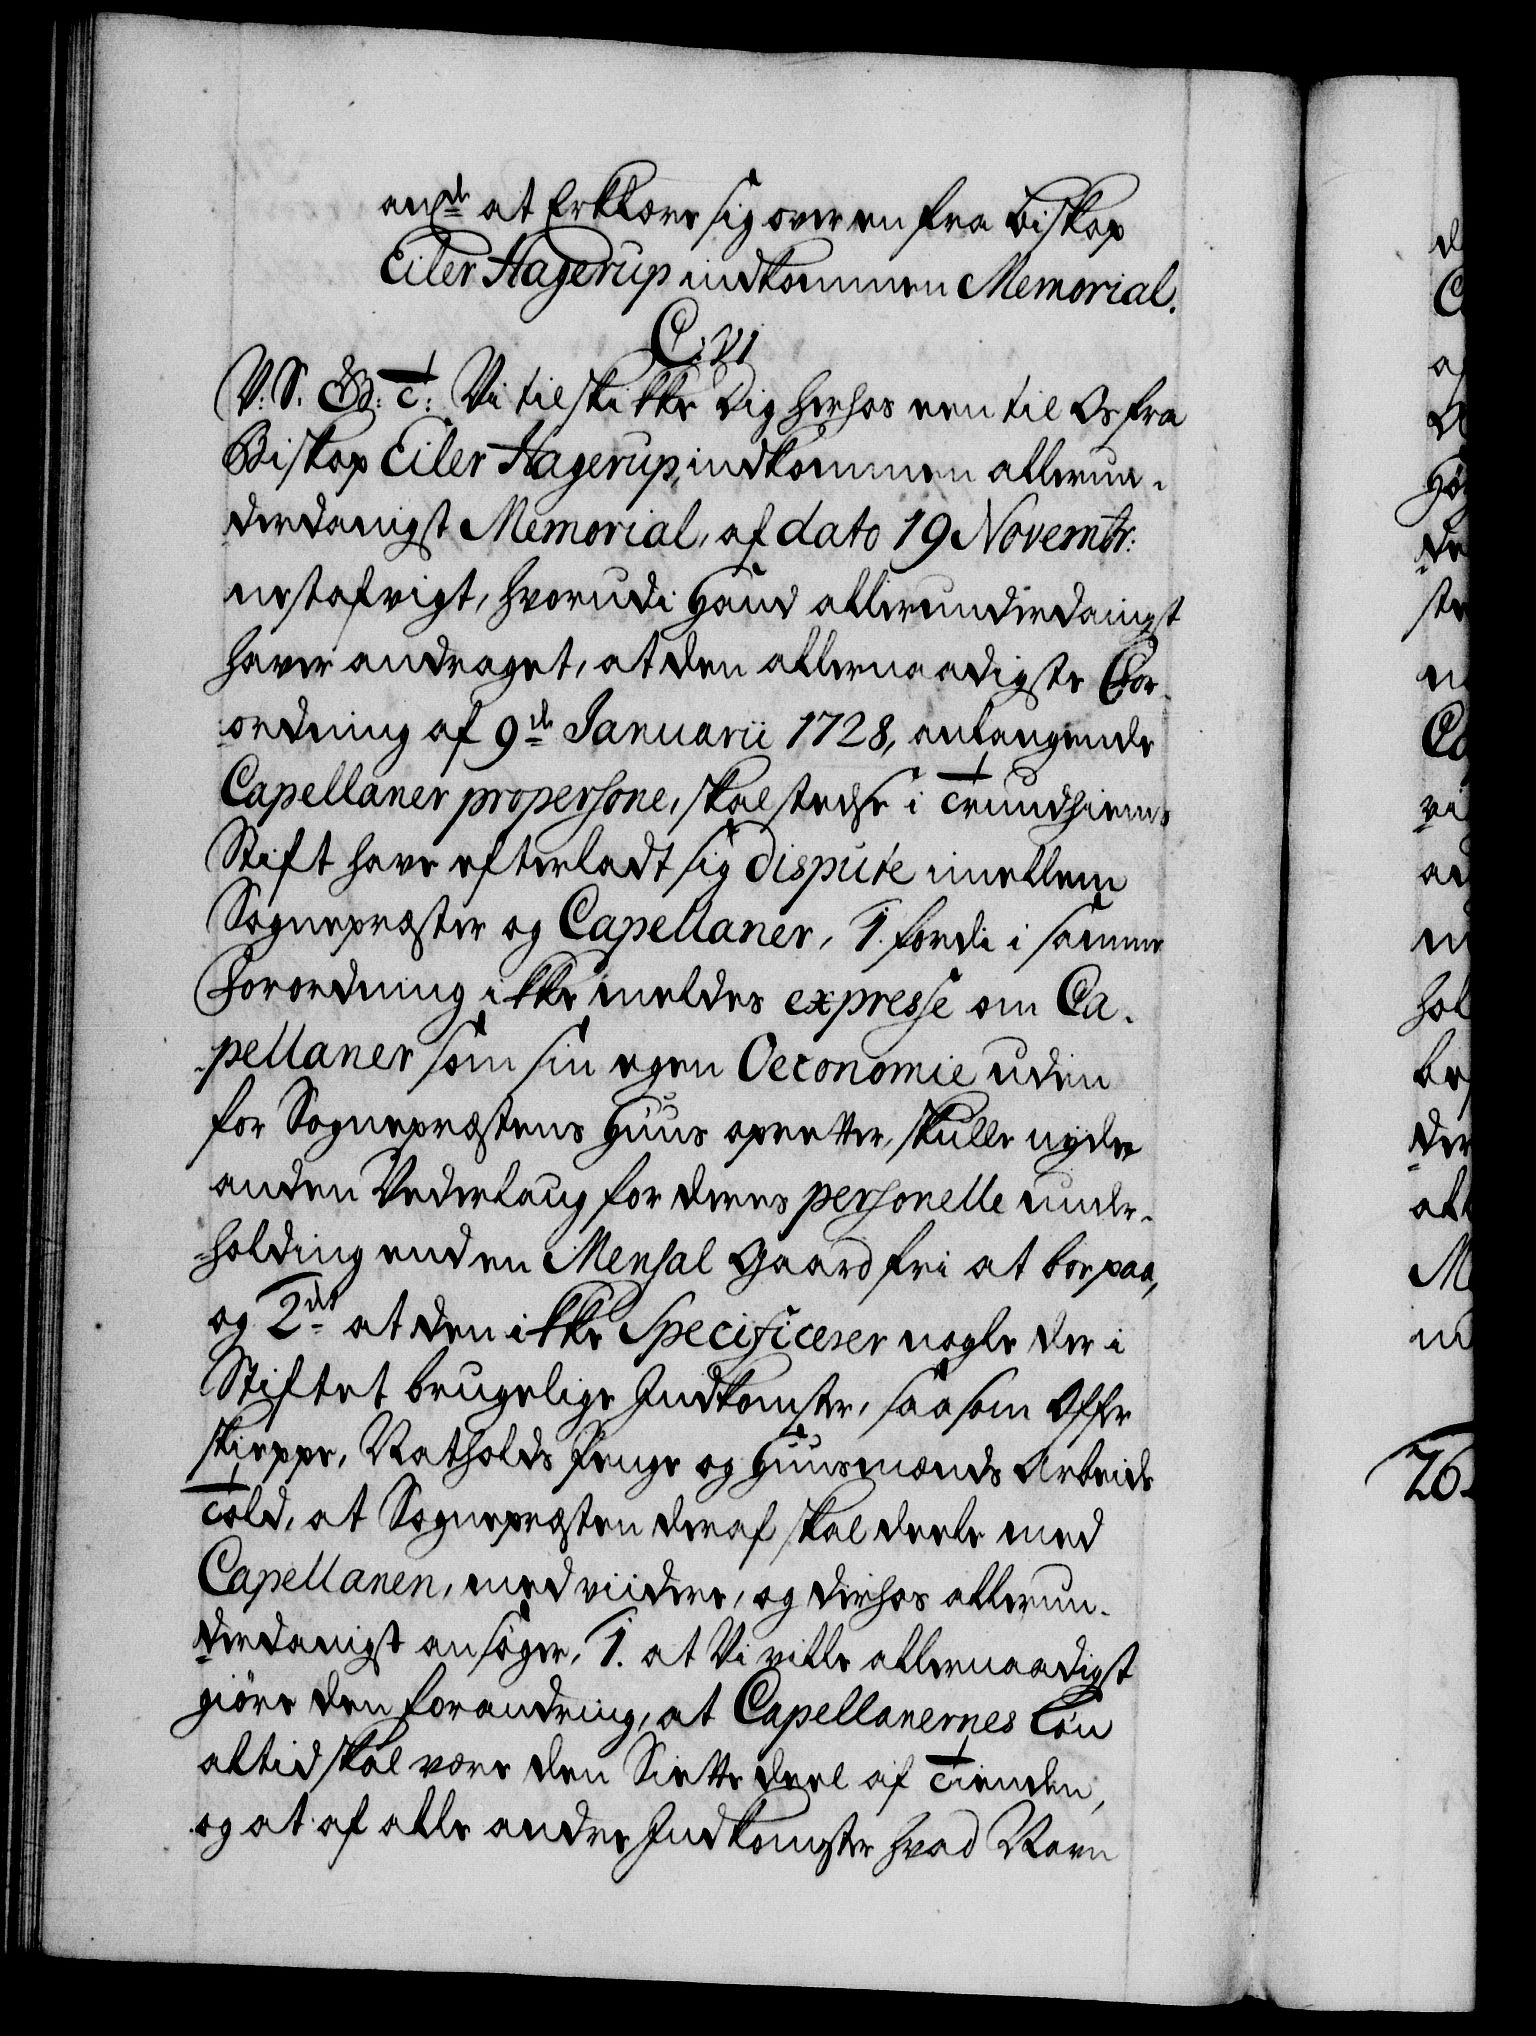 at Erklære sig over en fra Biskop
Eiler Hagerup indkommen Memorial.
C: VI
V: S. G: T: Vi tilskikke Dig herhos een til Os fra
Biskop Eiler Hagerup, indkommen allerun-
derdanigst Memorial, af dato 19 Novembr:
nestafvigt, hvorudi Hand allerunderdanigst
haver andraget, at den allernaadigste For-
ordning af 9de Januarii 1728, anlangende
Capellaner propersone, skal stedse i Trundhiems
Stift have efterladt sig dispute imellem
Sognepræster og Capellaner, 1. fordi i samme
Forordning ikke meldes expresse om Ca-
pellaner som sin egen Oeconomie uden
for Sognepræstens Huus opretter, skulle nyde
anden Vederlaug for deres personelle under-
holding end en Mensal Gaard fri at boe paa,
og 2det at den ikke Specificerer nogle der i
Stiftet brugelige Indkomster, saasom Offer
skieppe, Natholds Penge og Huusmænds Arbeids
Told, at Sognepræsten deraf skal deele med
Capellanen, med viidere, og derhos allerun-
derdanigst ansøger, 1. at Vi ville allernaadigst
giøre den forandring, at Capellanernes Løn
altid skal være den Siette deel af Tienden,
og at af alle andre Indkomster hvad Navn